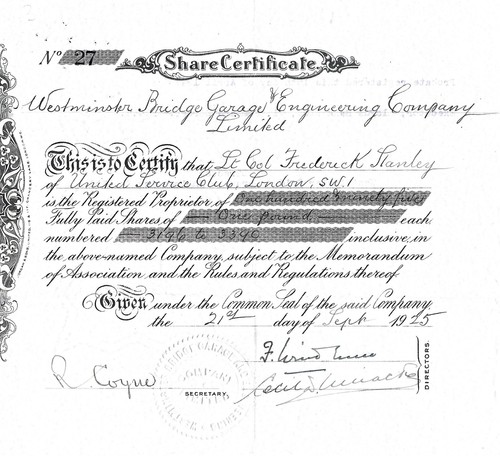 No 27
Share Certificate.
Westminster Bridge Garage & Engineering Company
Limited
This is to Certify that Lt Col Frederick Stanley
of United Service Club, London, SW.1
is the Registered Proprietor of One hundred & ninety five
Fully Paid Shares of One pound each
numbered 3196 to 3390 inclusive, in
the above-named Company, subject to the Memorandum
of Association and the Rules and Regulations thereof.
Given under the Common Seal of the said Company
the 21st day of Sept 1925
R Coyne
SECRETARY.
DIRECTORS.